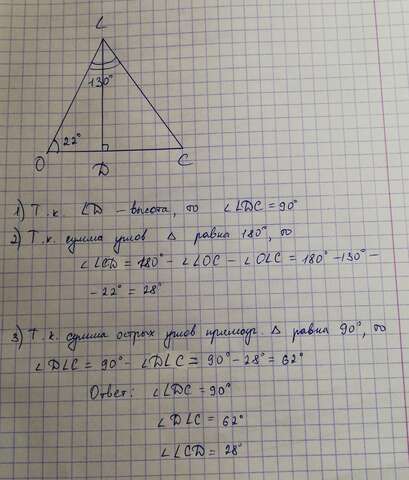 L
130°
22°
O
D
C
1) Т.к. LD - высота, то ∠LDC = 90°
2) Т.к. сумма углов Δ равна 180°, то
∠LCD = 180° - ∠LOC - ∠OLC = 180° - 130° -
- 22° = 28°
3) Т.к. сумма острых углов прямоуг. Δ равна 90°, то
∠DLC = 90° - ∠DLC = 90° - 28° = 62°
Ответ: ∠LDC = 90°
∠DLC = 62°
∠LCD = 28°